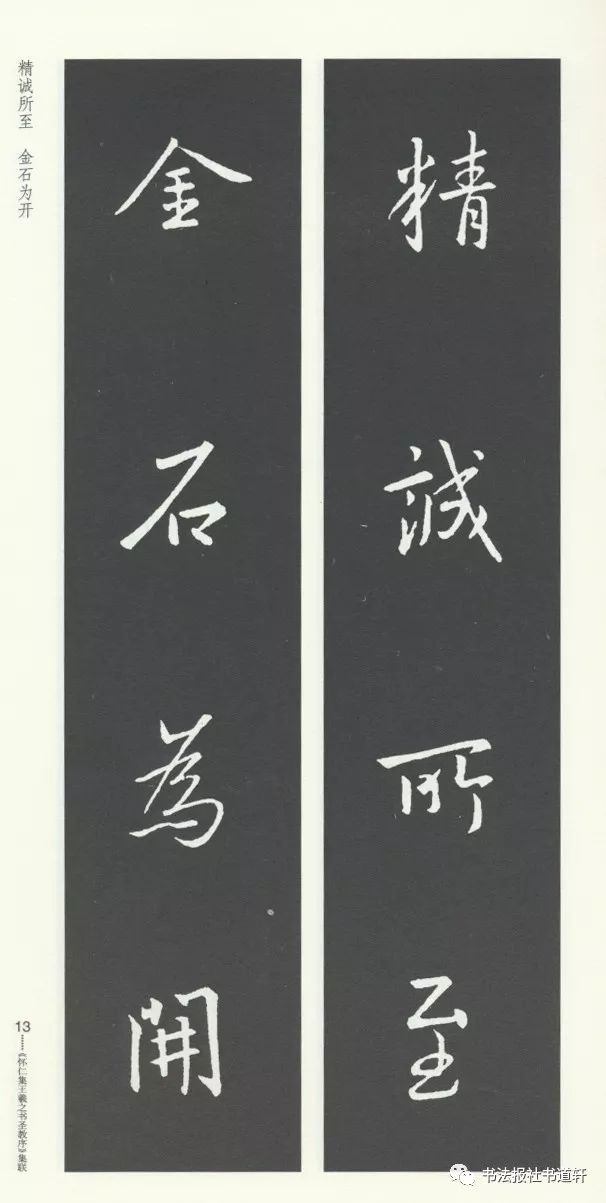 精誠所至
金石為開
精诚所至 金石为开
13……《怀仁集王羲之书圣教序》集联
书法报社书道轩